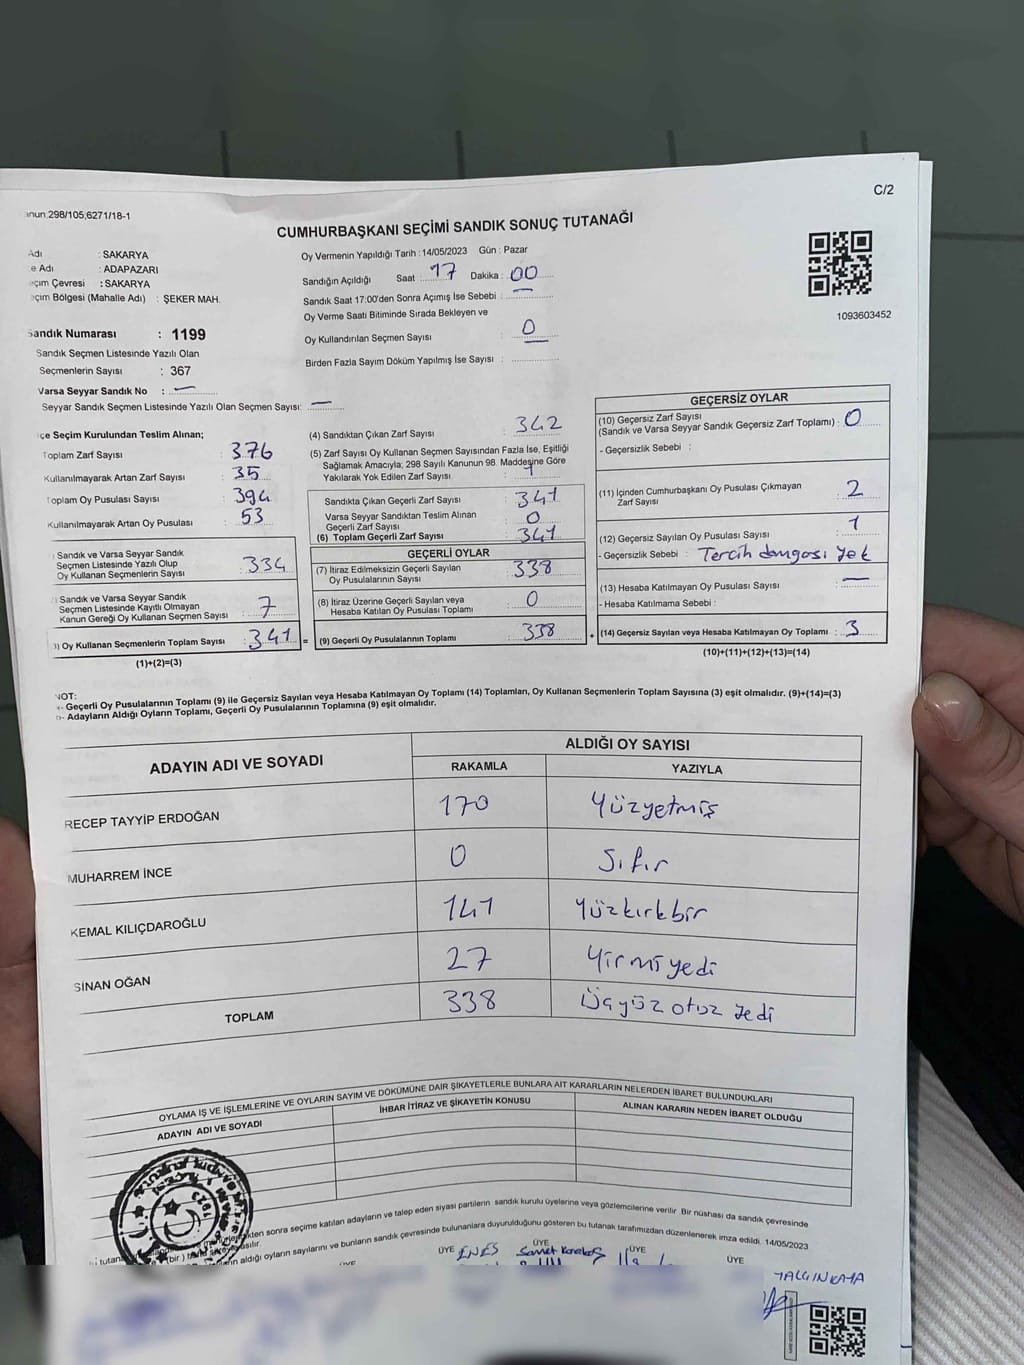 C/2
anun.298/105;6271/18-1
CUMHURBAŞKANI SEÇİMİ SANDIK SONUÇ TUTANAĞI
Adı : SAKARYA
e Adı : ADAPAZARI
eçim Çevresi : SAKARYA
eçim Bölgesi (Mahalle Adı) : ŞEKER MAH.
Sandık Numarası : 1199
Sandık Seçmen Listesinde Yazılı Olan
Seçmenlerin Sayısı : 367
Varsa Seyyar Sandık No : —
Seyyar Sandık Seçmen Listesinde Yazılı Olan Seçmen Sayısı: —
Oy Vermenin Yapıldığı Tarih : 14/05/2023 Gün : Pazar
Sandığın Açıldığı Saat : 17 Dakika : 00
Sandık Saat 17:00'den Sonra Açımış İse Sebebi : —
Oy Verme Saati Bitiminde Sırada Bekleyen ve
Oy Kullandırılan Seçmen Sayısı : 0
Birden Fazla Sayım Döküm Yapılmış İse Sayısı :
1093603452
çe Seçim Kurulundan Teslim Alınan;
Toplam Zarf Sayısı : 376
Kullanılmayarak Artan Zarf Sayısı : 35
Toplam Oy Pusulası Sayısı : 394
Kullanılmayarak Artan Oy Pusulası : 53
) Sandık ve Varsa Seyyar Sandık
Seçmen Listesinde Yazılı Olup
Oy Kullanan Seçmenlerin Sayısı : 334
) Sandık ve Varsa Seyyar Sandık
Seçmen Listesinde Kayıtlı Olmayan
Kanun Gereği Oy Kullanan Seçmen Sayısı : 7
) Oy Kullanan Seçmenlerin Toplam Sayısı : 341 =
(1)+(2)=(3)
(4) Sandıktan Çıkan Zarf Sayısı : 342
(5) Zarf Sayısı Oy Kullanan Seçmen Sayısından Fazla İse, Eşitliği
Sağlamak Amacıyla; 298 Sayılı Kanunun 98. Maddesine Göre
Yakılarak Yok Edilen Zarf Sayısı : 1
Sandıkta Çıkan Geçerli Zarf Sayısı : 341
Varsa Seyyar Sandıktan Teslim Alınan
Geçerli Zarf Sayısı : 0
(6) Toplam Geçerli Zarf Sayısı : 341
GEÇERLİ OYLAR
(7) İtiraz Edilmeksizin Geçerli Sayılan
Oy Pusulalarının Sayısı : 338
(8) İtiraz Üzerine Geçerli Sayılan veya
Hesaba Katılan Oy Pusulası Toplamı : 0
(9) Geçerli Oy Pusulalarının Toplamı : 338 +
GEÇERSİZ OYLAR
(10) Geçersiz Zarf Sayısı
(Sandık ve Varsa Seyyar Sandık Geçersiz Zarf Toplamı) : 0
- Geçersizlik Sebebi :
(11) İçinden Cumhurbaşkanı Oy Pusulası Çıkmayan
Zarf Sayısı : 2
(12) Geçersiz Sayılan Oy Pusulası Sayısı : 1
- Geçersizlik Sebebi : Tercih damgası yok
(13) Hesaba Katılmayan Oy Pusulası Sayısı : —
- Hesaba Katılmama Sebebi :
(14) Geçersiz Sayılan veya Hesaba Katılmayan Oy Toplamı : 3
(10)+(11)+(12)+(13)=(14)
NOT:
- Geçerli Oy Pusulalarının Toplamı (9) ile Geçersiz Sayılan veya Hesaba Katılmayan Oy Toplamı (14) Toplamları, Oy Kullanan Seçmenlerin Toplam Sayısına (3) eşit olmalıdır. (9)+(14)=(3)
- Adayların Aldığı Oyların Toplamı, Geçerli Oy Pusulalarının Toplamına (9) eşit olmalıdır.
ADAYIN ADI VE SOYADI ALDIĞI OY SAYISI
RAKAMLA YAZIYLA
RECEP TAYYİP ERDOĞAN 170 Yüzyetmiş
MUHARREM İNCE 0 Sıfır
KEMAL KILIÇDAROĞLU 141 Yüzkırkbir
SİNAN OĞAN 27 Yirmiyedi
TOPLAM 338 Üçyüz otuz yedi
OYLAMA İŞ VE İŞLEMLERİNE VE OYLARIN SAYIM VE DÖKÜMÜNE DAİR ŞİKAYETLERLE BUNLARA AİT KARARLARIN NELERDEN İBARET BULUNDUKLARI
ADAYIN ADI VE SOYADI İHBAR İTİRAZ VE ŞİKAYETİN KONUSU ALINAN KARARIN NEDEN İBARET OLDUĞU
sonra seçime katılan adayların ve talep eden siyasi partilerin sandık kurulu üyelerine veya gözlemcilerine verilir. Bir nüshası da sandık çevresinde
aldığı oyların sayılarını ve bunların sandık çevresinde bulunanlara duyurulduğunu gösteren bu tutanak tarafımızdan düzenlenerek imza edildi. 14/05/2023
ÜYE ÜYE ÜYE ÜYE
ENES Samet
YALÇINKAYA